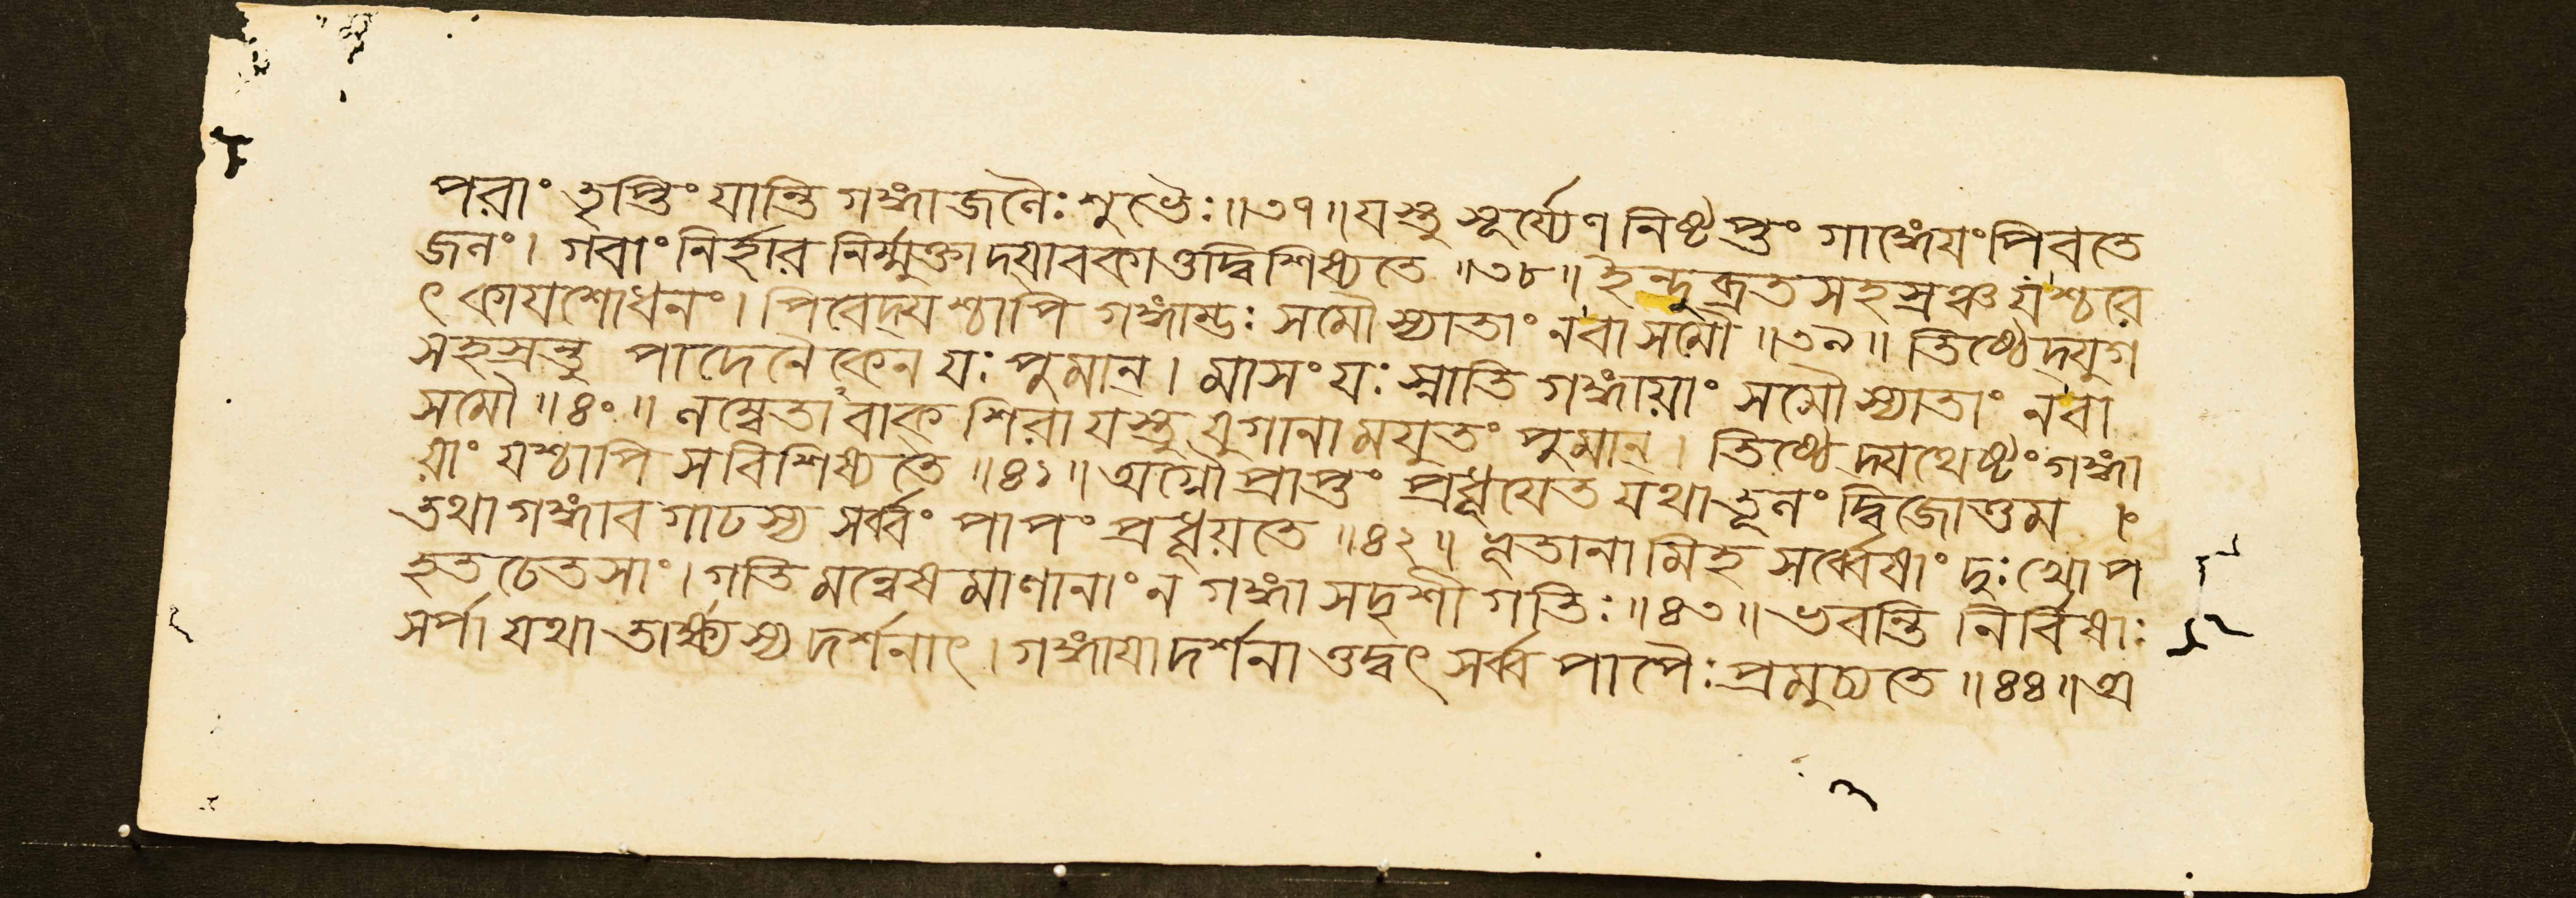 পরাং তৃপ্তিং যান্তি গঙ্গাজলৈঃ শুভৈঃ ॥৩৭॥ যস্তু সূর্য্যেণ নিষ্টপ্তং গাঙ্গেয়ং পিবতে
জলং । গবাং নির্হার নির্ম্মুক্তাদ্যাবকাত্তদ্বিশিষ্যতে ॥৩৮॥ ইন্দুব্রতসহস্রঞ্চ যশ্চরে
ৎ কায়শোধনং । পিবেদ্যশ্চাপি গঙ্গাম্ভঃ সমৌ স্যাতাং নবা সমৌ ॥৩৯॥ তিষ্ঠেদ্যুগ
সহস্রন্তু পাদেনৈকেন যঃ পুমান্ । মাসং যঃ স্নাতি গঙ্গায়াং সমৌ স্যাতাং নবা
সমৌ ॥৪০॥ লম্বেতাবাক্ শিরা যস্তু যুগানামযুতং পুমান্ । তিষ্ঠেদ্যথেষ্টং গঙ্গা
য়াং যশ্চাপি স বিশিষ্যতে ॥৪১॥ অগ্নৌ প্রাপ্তং প্রধূয়েত যথা তূলং দ্বিজোত্তম ।
তথা গঙ্গাবগাঢস্য সর্ব্বং পাপং প্রধূয়তে ॥৪২॥ ভূতানামিহ সর্ব্বেষাং দুঃখোপ
হতচেতসাং । গতিমন্বেষমাণানাং ন গঙ্গাসদৃশী গতিঃ ॥৪৩॥ ভবন্তি নির্বিষাঃ
সর্পা যথা তার্ক্ষ্যস্য দর্শনাৎ । গঙ্গায়া দর্শনাত্তদ্বৎ সর্ব্বপাপৈঃ প্রমুচ্যতে ॥৪৪॥ অ